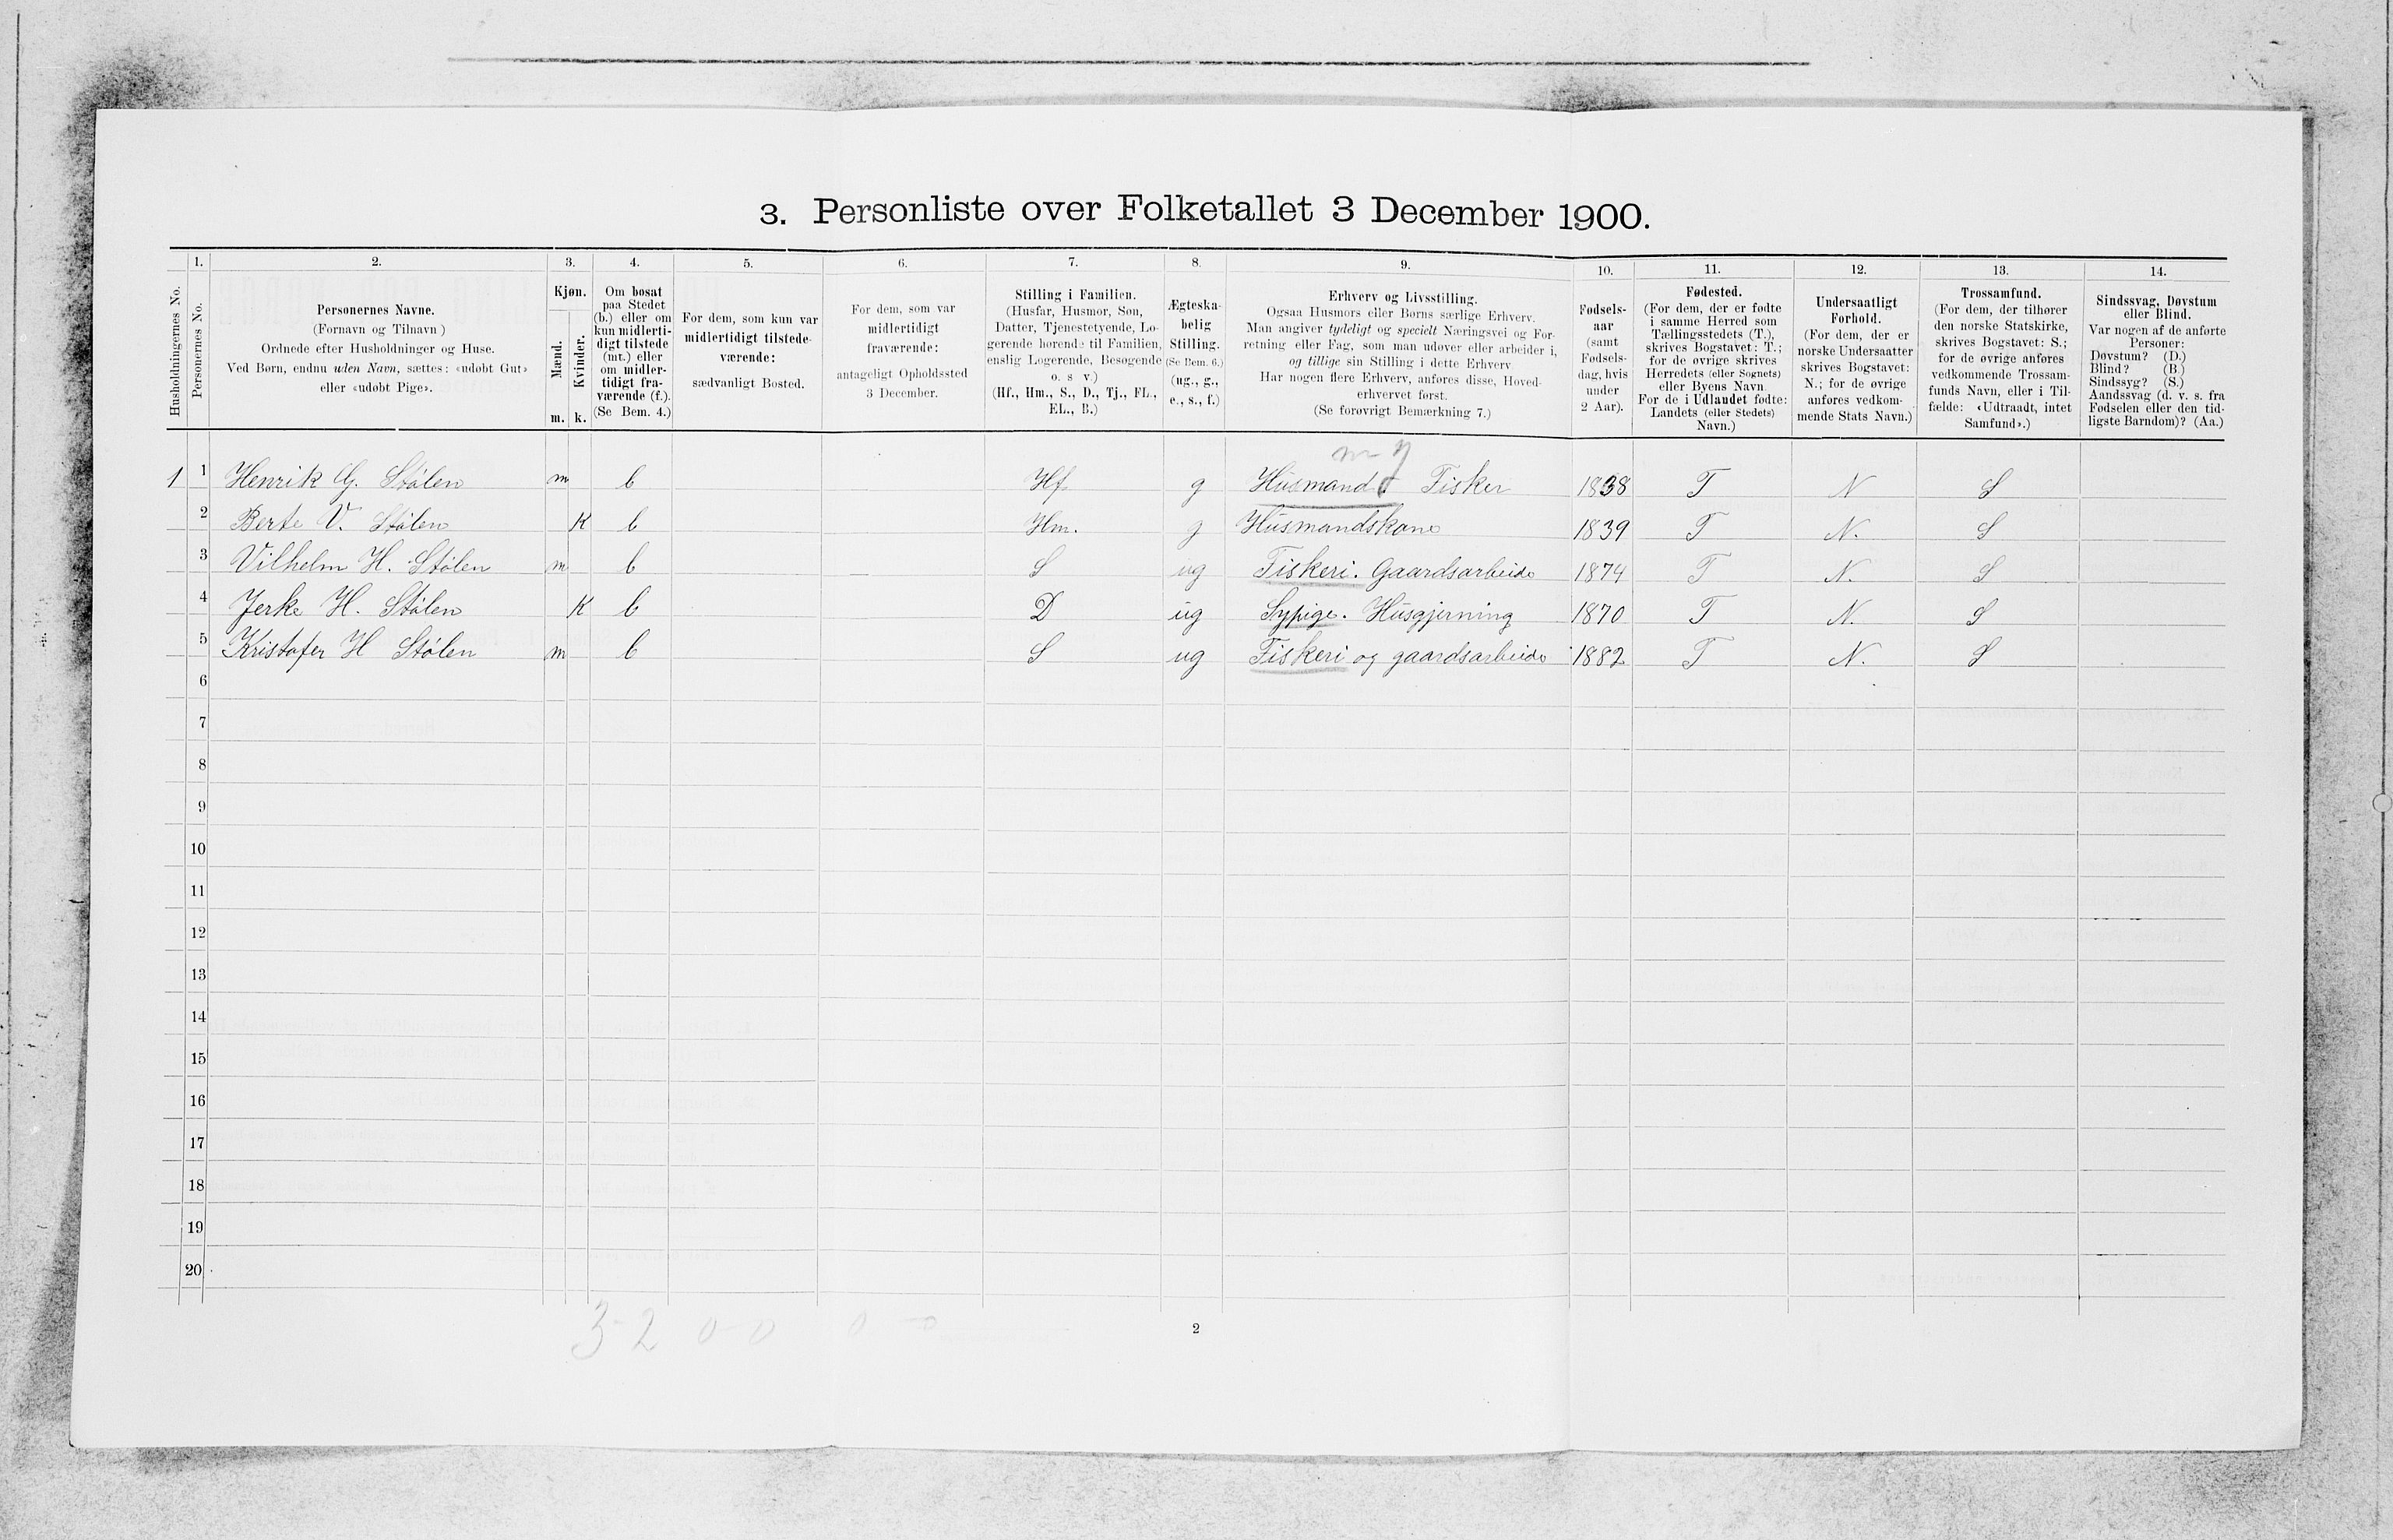 3. Personliste over Folketallet 3 December 1900.
1. 2. 3. 4. 5. 6. 7. 8. 9. 10. 11. 12. 13. 14.
Husholdningernes No.
Personernes No.
Personernes Navne.
(Fornavn og Tilnavn )
Ordnede efter Husholdninger og Huse.
Ved Børn, endnu uden Navn, sættes: «udøbt Gut»
eller «udøbt Pige».
Kjøn.
Mænd.
Kvinder.
m. k.
Om bosat
paa Stedet
(b.) eller om
kun midlerti-
digt tilstede
(mt.) eller
om midler-
tidigt fra-
værende (f.).
(Se Bem. 4.)
For dem, som kun var
midlertidigt tilstede-
værende:
sædvanligt Bosted.
For dem, som var
midlertidigt
fraværende:
antageligt Opholdssted
3 December.
Stilling i Familien.
(Husfar, Husmor, Søn,
Datter, Tjenestetyende, Lo-
gerende hørende til Familien,
enslig Logerende, Besøgende
o. s v.)
(Hf., Hm., S., D., Tj., FL.,
EL., B.)
Ægteska-
belig
Stilling.
(Se Bem. 6.)
(ug., g.,
e., s., f.)
Erhverv og Livsstilling.
Ogsaa Husmors eller Børns særlige Erhverv.
Man angiver tydeligt og specielt Næringsvei og For-
retning eller Fag, som man udøver eller arbeider i,
og tillige sin Stilling i dette Erhverv.
Har nogen flere Erhverv, anføres disse, Hoved-
erhvervet først.
(Se forøvrigt Bemærkning 7.)
Fødsels-
aar
(samt
Fødsels-
dag, hvis
under
2 Aar).
Fødested.
(For dem, der er fødte
i samme Herred som
Tællingsstedets (T.),
skrives Bogstavet: T.;
for de øvrige skrives
Herredets (eller Sognets)
eller Byens Navn.
For de i Udlandet fødte:
Landets (eller Stedets)
Navn.)
Undersaatligt
Forhold.
(For dem, der er
norske Undersaatter
skrives Bogstavet:
N.; for de øvrige
anføres vedkom-
mende Stats Navn.)
Trossamfund.
(For dem, der tilhører
den norske Statskirke,
skrives Bogstavet: S.;
for de øvrige anføres
vedkommende Trossam-
funds Navn, eller i Til-
fælde: «Udtraadt, intet
Samfund».)
Sindssvag, Døvstum
eller Blind.
Var nogen af de anførte
Personer:
Døvstum? (D.)
Blind? (B.)
Sindssyg? (S.)
Aandssvag (d. v. s. fra
Fødselen eller den tid-
ligste Barndom)? (Aa.)
1 1 Henrik G. Stølen m b Hf. g Husmand Fisker 1838 T N S
2 Berte V. Stølen K b Hm. g Husmandskone 1839 T N. S
3 Vilhelm H. Stølen m b S ug Fiskeri. Gaardsarbeide 1874 T N. S
4 Jerke H. Stølen K b D ug Sypige. Husgjerning 1870 T N. S
5 Kristofer H Stølen m b S ug Fiskeri og gaardsarbeide 1882 T N. S
6
7
8
9
10
11
12
13
14
15
16
17
18
19
20
3-2 0-0 0-0
2